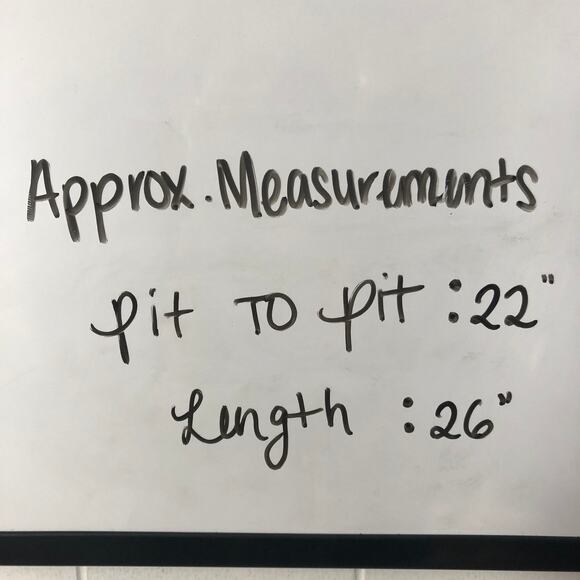 Approx. Measurements
pit TO pit : 22"
Length : 26"